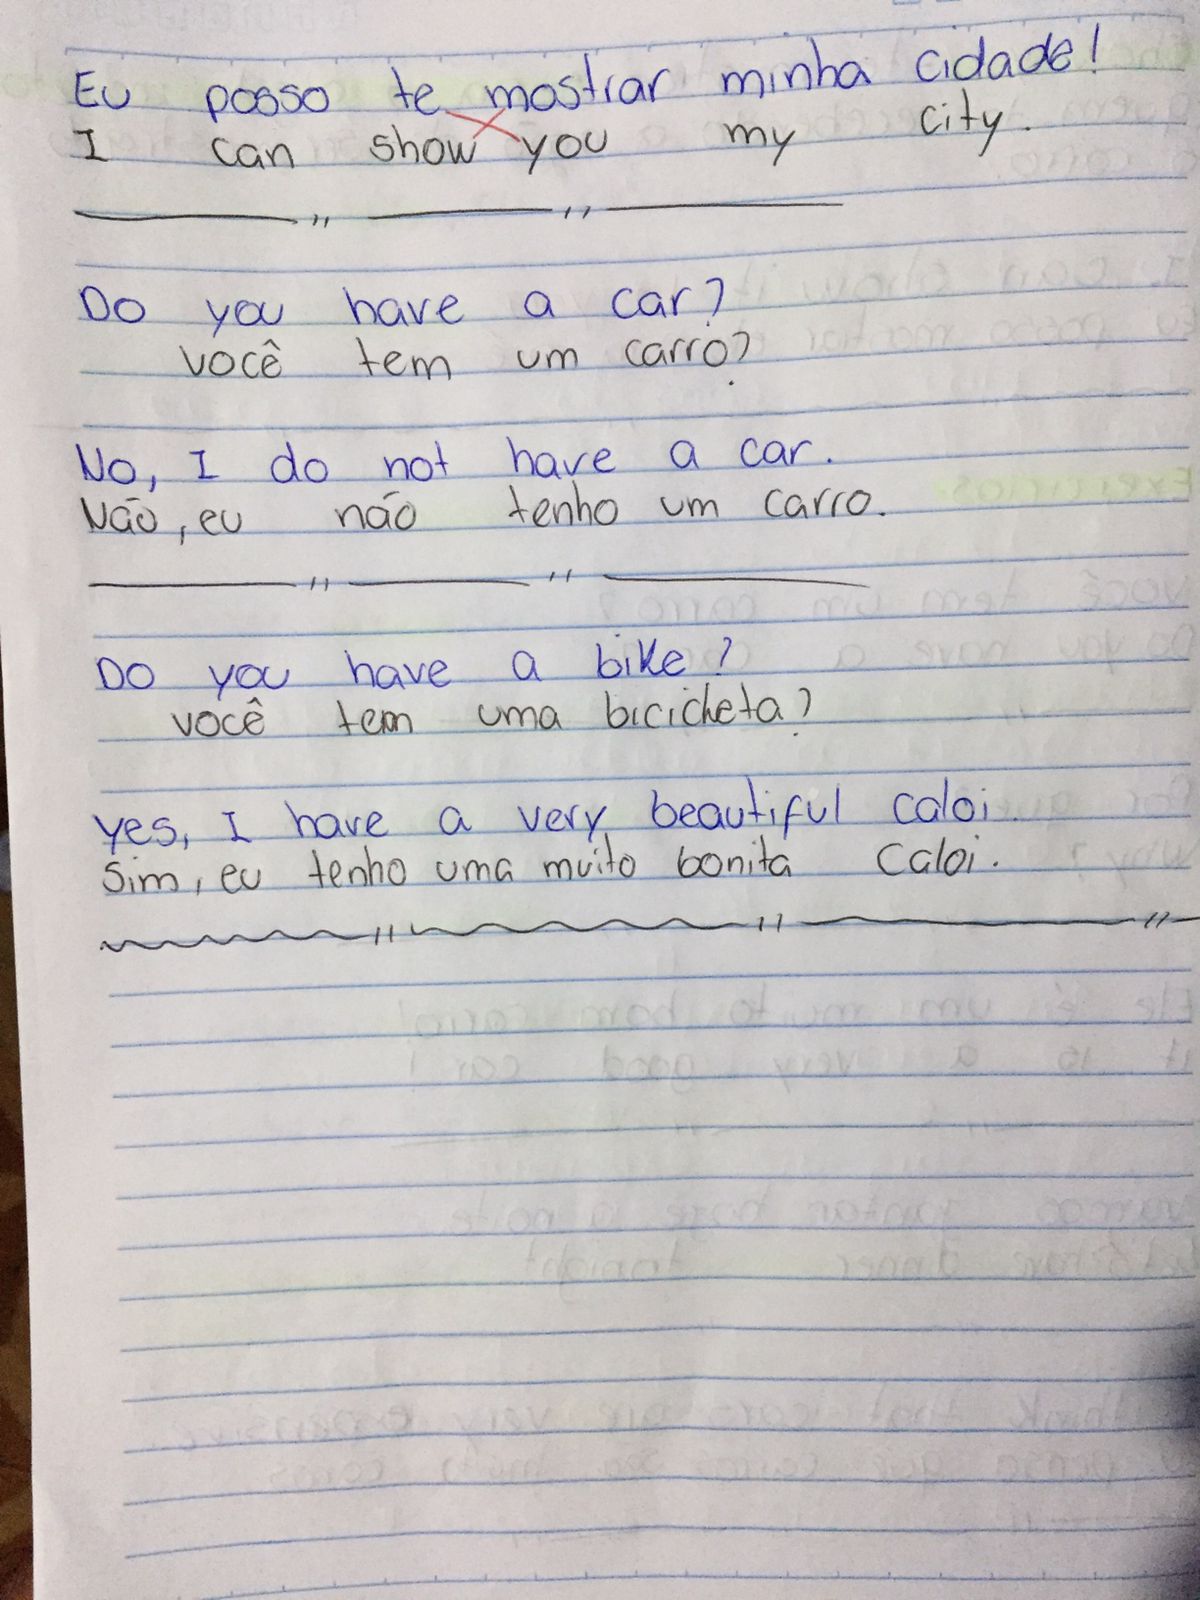 Eu posso te mostrar minha cidade!
I can show you my city.
Do you have a car?
você tem um carro?
No, I do not have a car.
Não, eu não tenho um carro.
Do you have a bike?
você tem uma bicicheta?
Yes, I have a very beautiful caloi
Sim, eu tenho uma muito bonita Caloi.